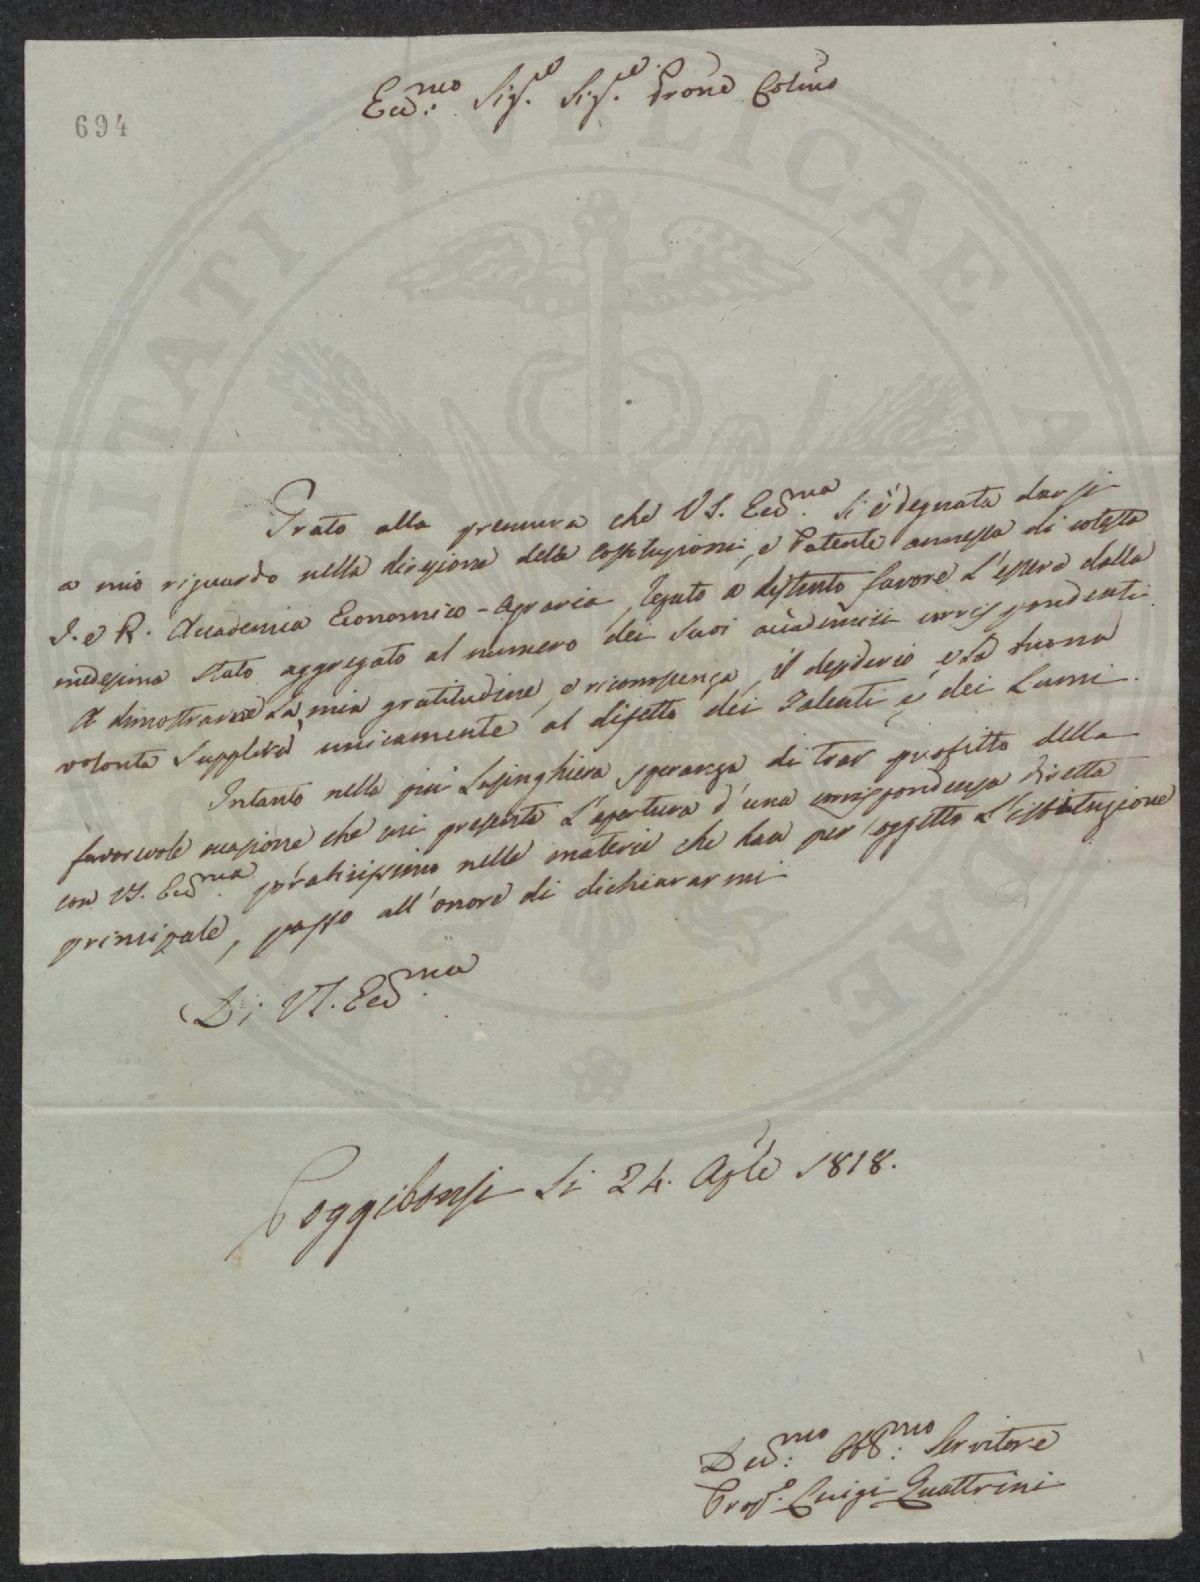 694
Ecc.mo Sig.e Sig.e Prone Colmo
Grato alla premura che VS. Ecc.ma si è degnata darsi
a mio riguardo nella direzione delle Costituzioni, e Patente annessa di cotesta
I. e R. Accademia Economico-Agraria, legato a distinto favore l'essere dalla
medesima stato aggregato al numero dei suoi accademici corrispondenti.
A dimostrarne la mia gratitudine, e ricompensa, il desiderio, e la buona
volontà supplirà unicamente al difetto dei Talenti e dei Lumi.
Intanto nella più lusinghiera speranza di trar profitto della
favorevole occasione che mi presenta l'apertura d'una corrispondenza diretta
con VS. Ecc.ma pratichissimo nelle materie che han per oggetto l'istituzione
principale, passo all'onore di dichiararmi
Di VS. Ecc.ma
Poggibonsi li 24. Aple 1818.
Dev.mo Obb.mo Servitore
Prof.e Luigi Quattrini
PUBLICAE